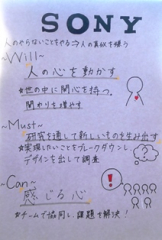 SONY
人のやらないことをやる→人の真似を嫌う
~Will~
人の心を動かす
#世の中に関心を持つ、
関わりを増やす
~Must~
研究を通して新しいものを生み出す
#実現したいことをブレークダウンし
デザインを出して調査
~Can~
感じる心
#チームで協同し、課題を解決!